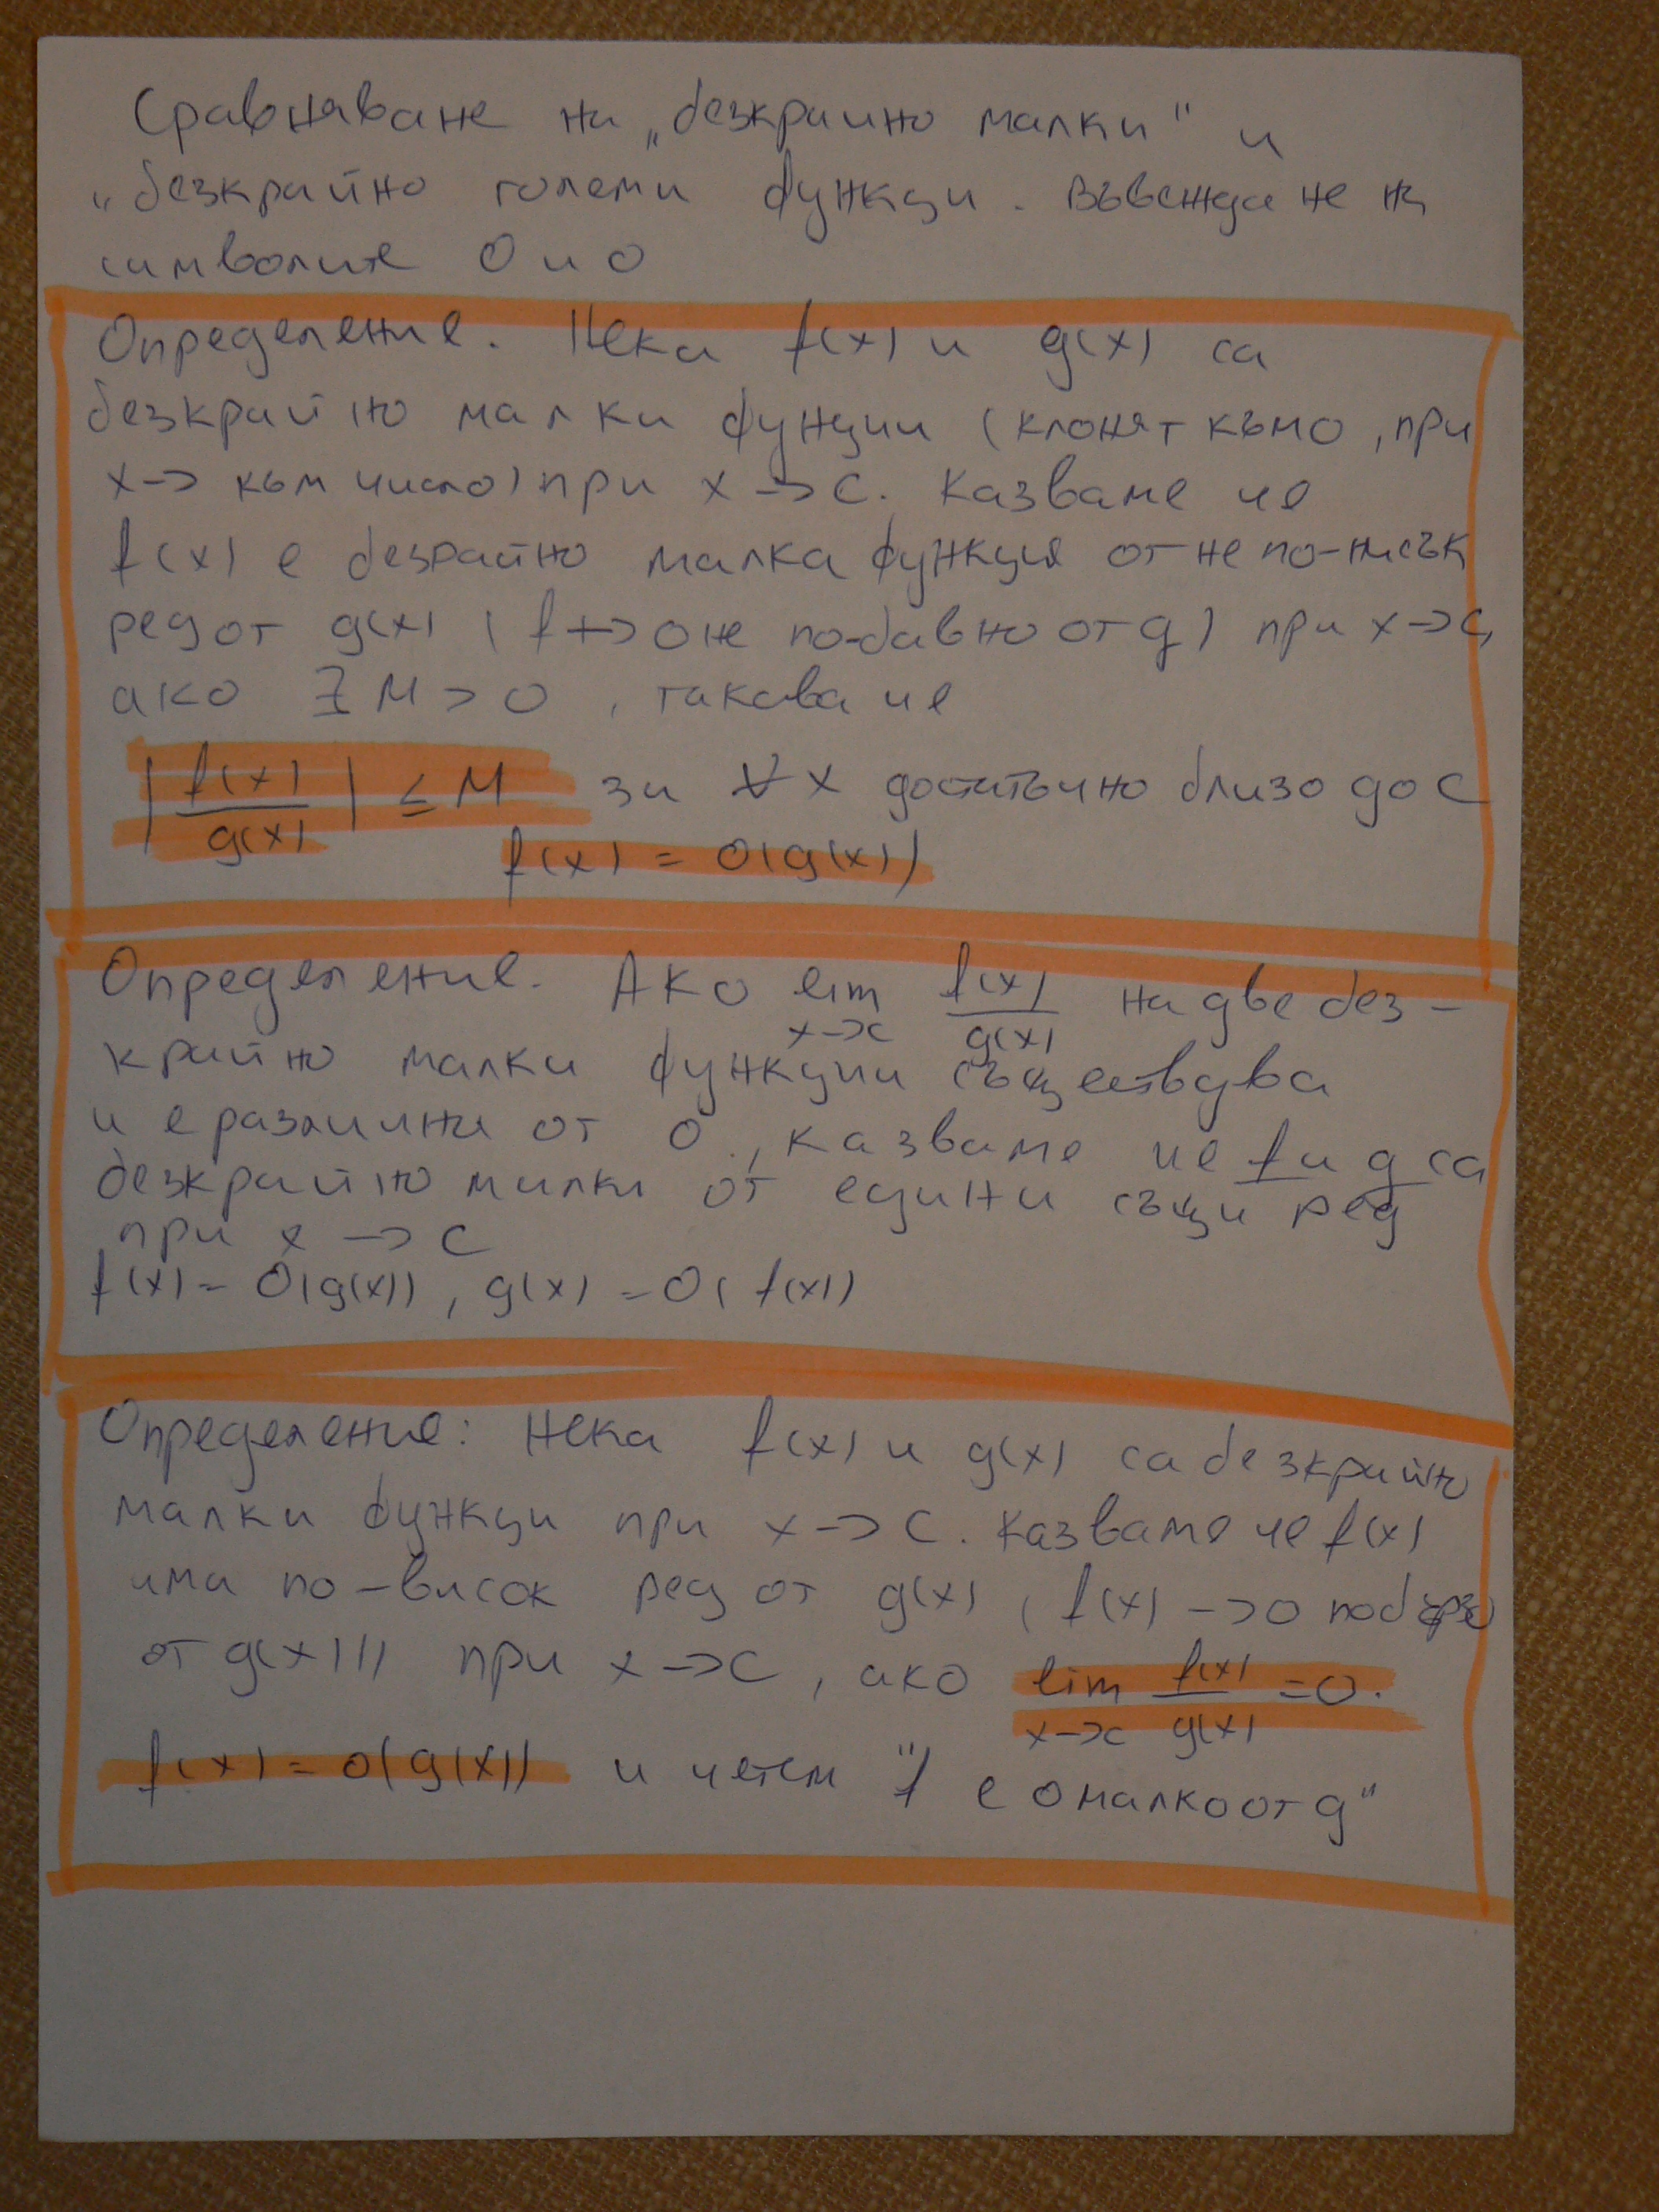 Сравняване на „безкрайно малки" и
„безкрайно големи функци. Въвеждане на
символите O и o
Определение. Нека f(x) и g(x) са
безкрайно малки фунции (клонят към 0, при
x -> към число) при x -> c. Казваме че
f(x) е безрайно малка функция от не по-нисък
ред от g(x) ( f +-> 0 не по-бавно от g) при x -> c,
ако ∃ M > 0 , такова че
|f(x)/g(x)| ≤ M за ∀ x достатъчно близо до c
f(x) = O(g(x))
Определение. Ако lim x->c f(x)/g(x) на две без-
крайно малки функции съществува
и е различна от 0, казваме че f и g са
безкрайно малки от един и същи ред
при x -> c
f(x) = O(g(x)), g(x) = O( f(x))
Определение: Нека f(x) и g(x) са безкрайно
малки функци при x -> c. Казваме че f(x)
има по-висок ред от g(x) ( f(x) -> 0 по бързо
от g(x)) при x -> c, ако lim x->c f(x)/g(x) = 0.
f(x) = o(g(x)) и четем "f е o малко от g"